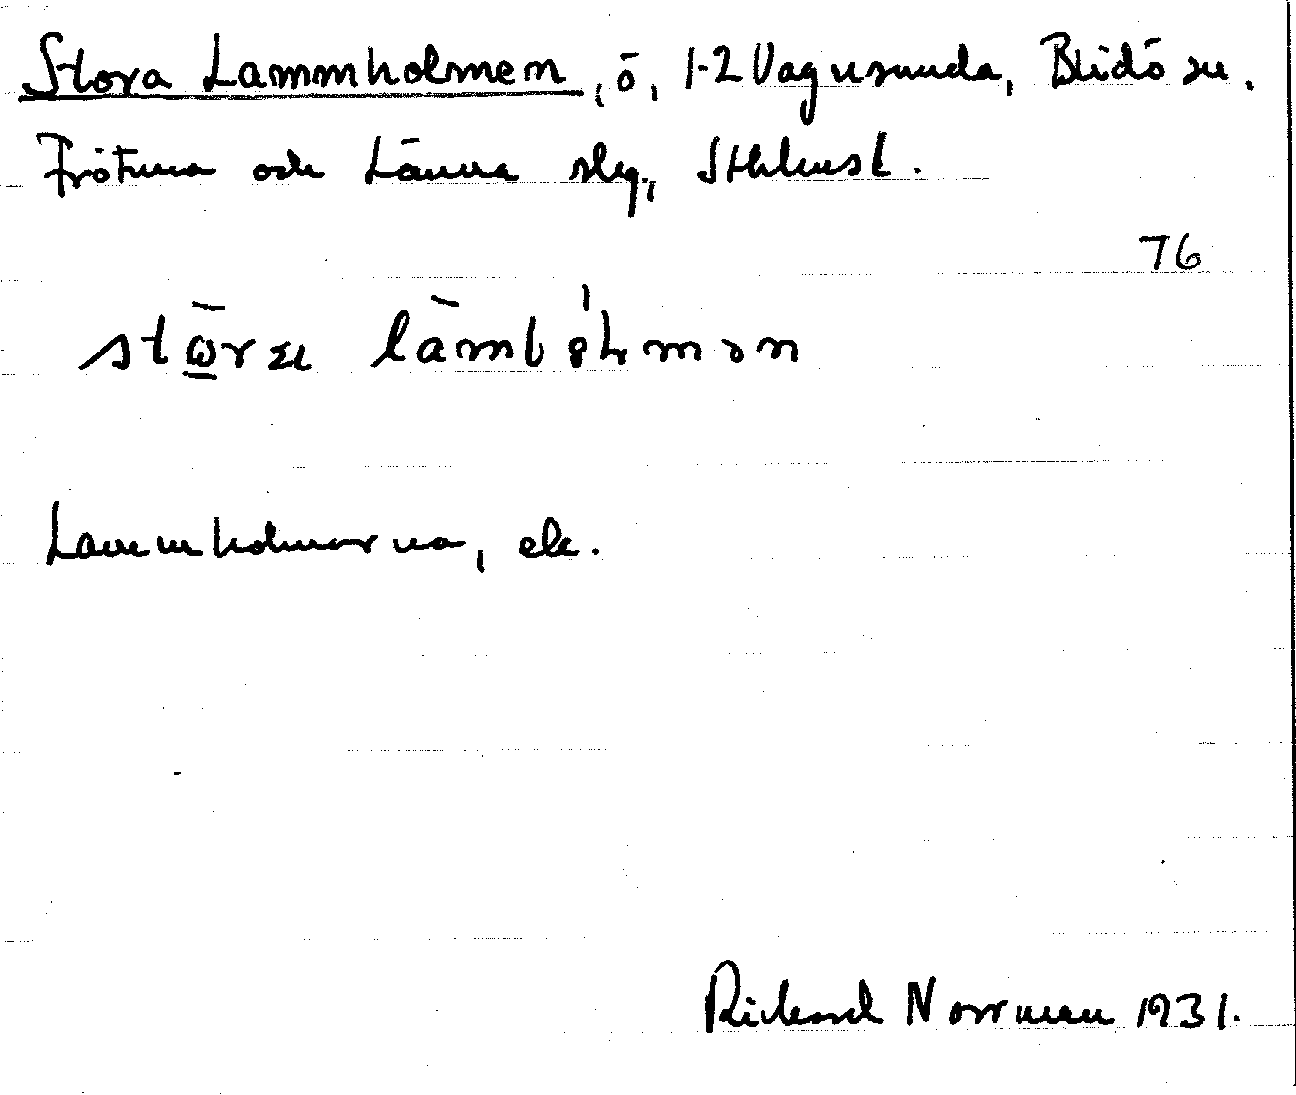 Stora Lammholmen, ö, 1-2 Vagnsunda, Blidö sn.
Frötuna och Länna slg., Sthlmsl.
76
Lammholmarna, ek.
Rickard Norrman 1931.